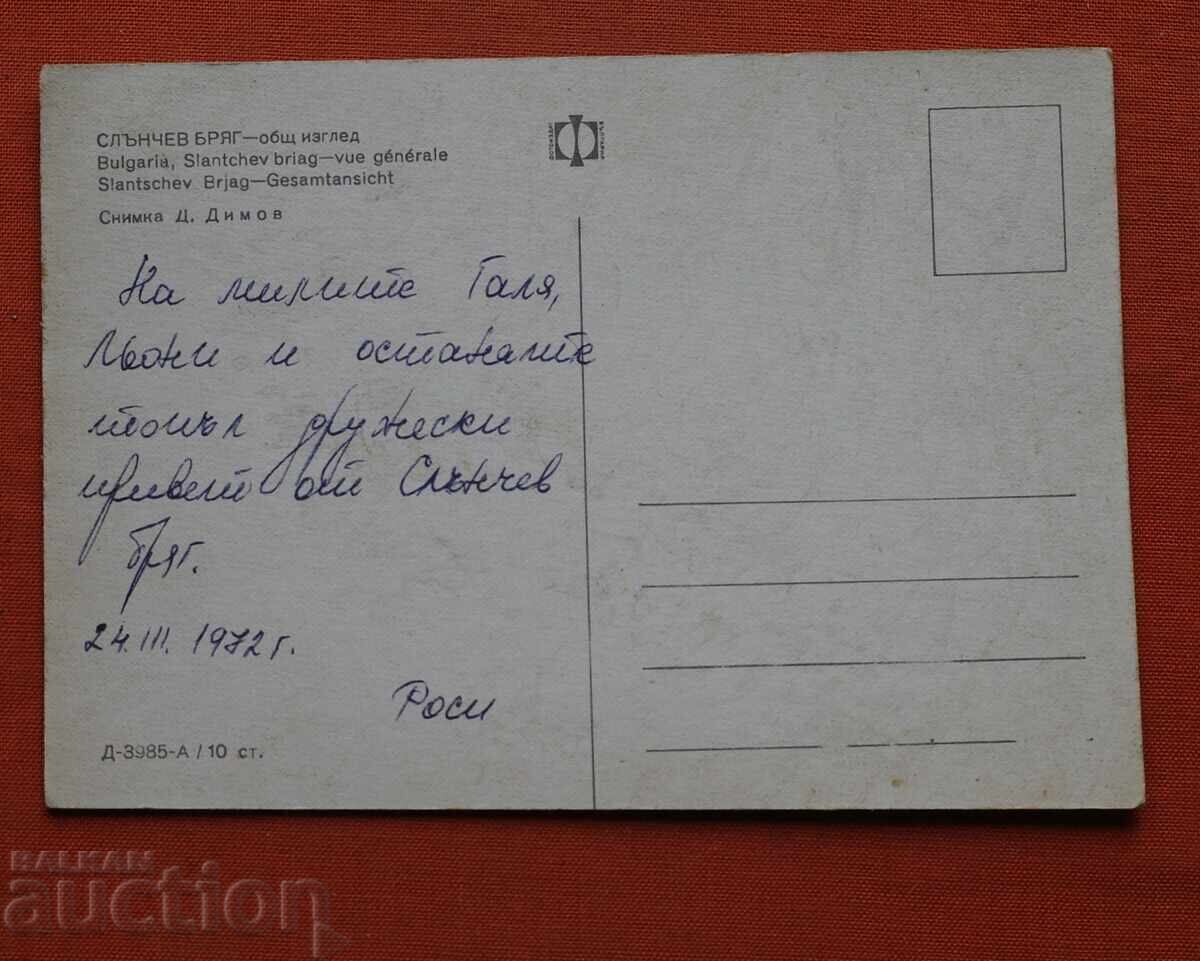 СЛЪНЧЕВ БРЯГ—общ изглед
Bulgaria, Slantchev briag—vue générale
Slantschev Brjag—Gesamtansicht
Снимка Д. Димов
На милите Галя,
Льони и останалите
топъл дружески
привет от Слънчев
бряг.
24.III.1972 г.
Роси
Д-3985-А / 10 ст.
BALKAN
auction